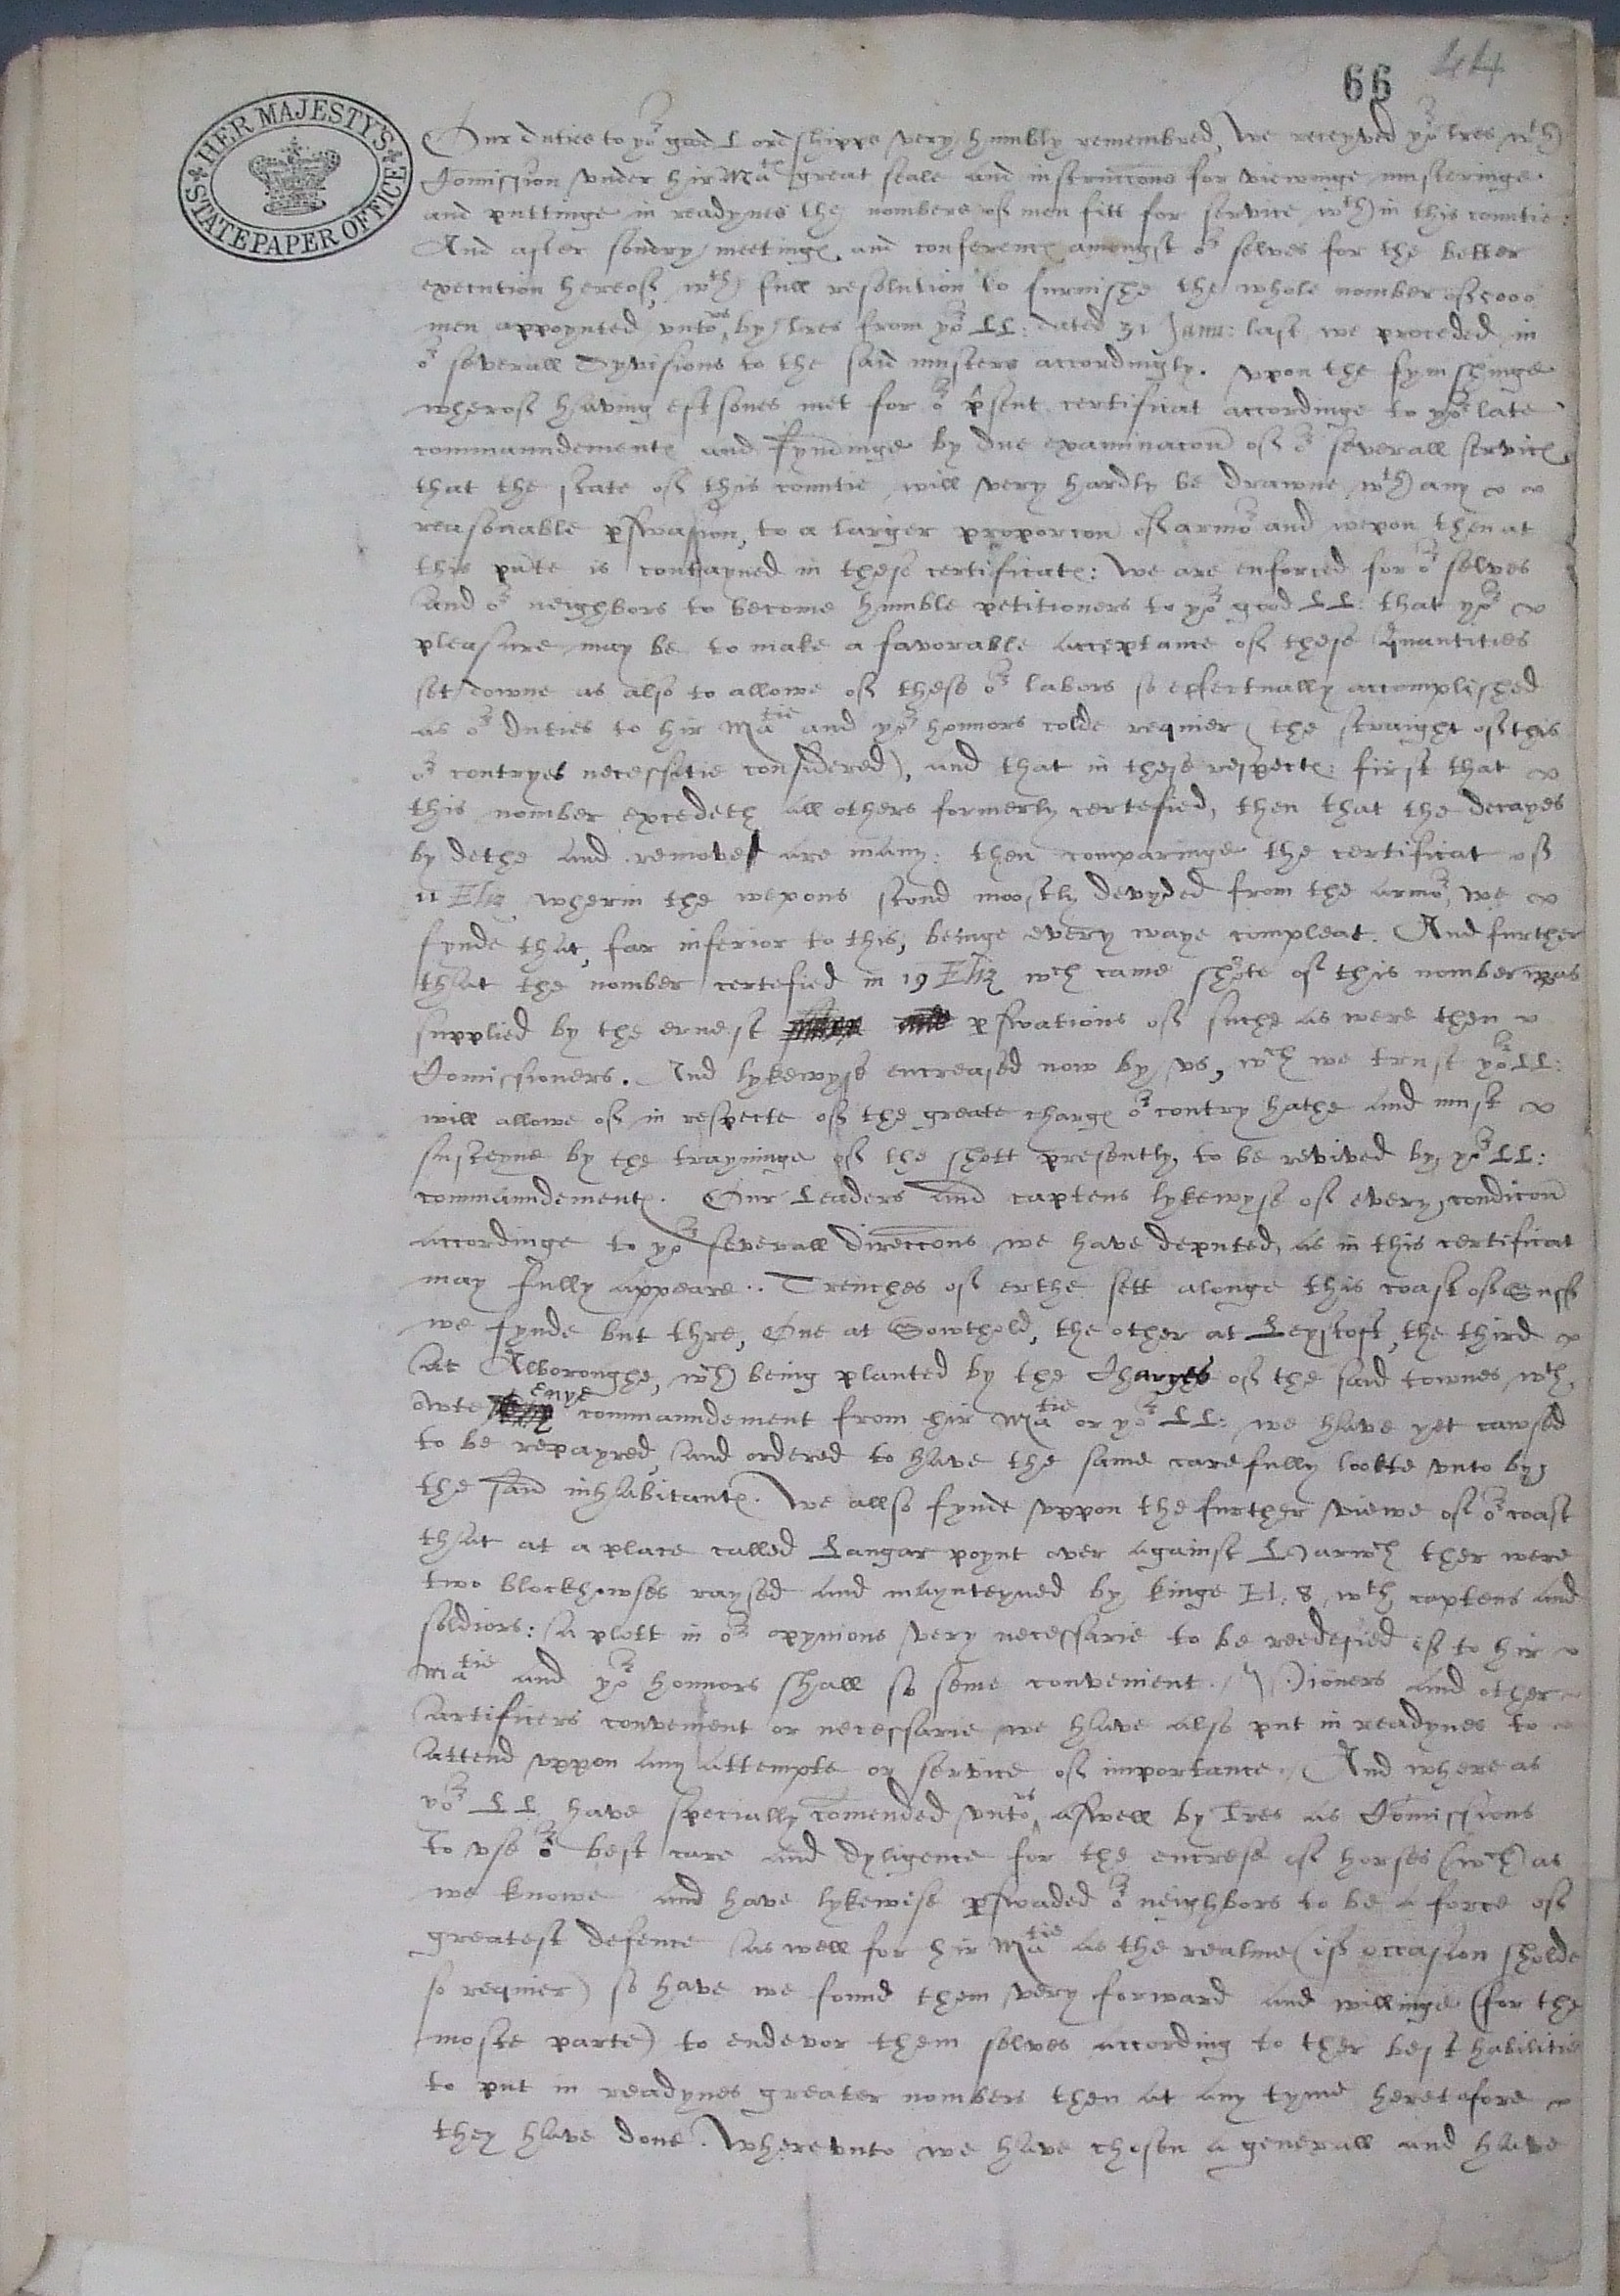 66 44
HER MAJESTY'S STATE PAPER OFFICE
Our duties to yor good Lordshipps very humbly remembred, We receyved yor lres wth
Comission vnder hir Matis great seale and instruccons for viewinge musteringe
and puttinge in readynes the nombers of men fitt for service wthin this countie:
And after sondry meetinges and conferences amongst or selves for the better
execution hereof, wth full resolution to furnishe the whole nomber of 5000
men appoynted vnto vs by lres from yor LL: dated 31 Janu: last we proceded in
or severall Dyvisions to the said musters accordingly. Vpon the fynishinge
wherof having eftsones met for or psent certificat accordinge to yor late
commaundementes and fyndinge by due examinacon of or severall services
that the state of this countie will very hardly be drawne wth any
reasonable pswasion, to a larger proporcon of armor and wepon then at
this pnte is contayned in these certificates: We are enforced for or selves
and or neighbors to become humble petitioners to yor good LL: that yor
pleasure may be to make a favorable acceptance of these Quantities
set downe as also to allowe of these or labors so effectually accomplished
as or duties to hir Matie and yor honnors colde requier (the straight of this
or contryes necessitie considered), and that in these respectes: first that
this nomber excedeth all others formerly certefied, then that the decayes
by dethe and removes are many: then comparinge the certificat of
11 Eliz wherin the wepons stond moostly devyded from the armor, we
fynde that, far inferior to this, beinge every waye compleat. And further
that the nomber certefied in 19 Eliz wch came shorte of this nomber was
supplied by the ernest pswations of suche as were then
Comissioners. And lykewyse encreased now by vs, wch we trust yor LL:
will allowe of in respecte of the greate charges or contry hathe and must
susteyne by the trayninge of the shott presently, to be revived by yor LL:
commaundementes. Our Leaders and captens lykewyse of every condicon
accordinge to yor severall direccons we have deputed, as in this certificat
may fully appeare.. Trenches of erthe sett alonge this coast of Suff
we fynde but thre, One at Sowthold, the other at Leystoft, the third
at Alboroughe, wch being planted by the Charges of the said townes wth
owte enye commaundement from hir Matie or yor LL: we have yet cawsed
to be repayred, and ordered to have the same carefully lookte vnto by
the said inhabitantes. We allso fynde vppon the further viewe of or coast
that at a place called Langar poynt over against Harwch ther were
two blockhowses raysed and maynteyned by kinge H. 8 wth captens and
soldiors: A plott in or opynions very necessarie to be reedefied if to hir
Matie and yor honnors shall so seme convenient. Pioners and other
Artificers convenient or necessarie we have also put in readynes to
attend vppon any attempte or service of importance. And where as
yor LL have specially comended vnto vs aswell by lres as Comissions
to vse or best care and dyligence for the encrese of horses (wch) as
we knowe and have lykewise pswaded or neighbors to be a force of
greatest defence as well for hir Matie as the realme (if occasion sholde
so requier) so have we found them very forward and willinge (for the
moste parte) to endevor them selves according to ther best habilitie
to put in readynes greater nombers then at any tyme heretofore
they have done. Wherevnto we have chosen a generall and have